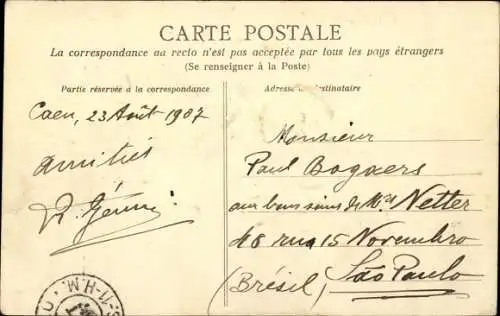 CARTE POSTALE
La correspondance au recto n'est pas acceptée par tous les pays étrangers
(Se renseigner à la Poste)
Partie réservée à la correspondance
Adresse du destinataire
Caen, 23 Août 1907
amitiés
Monsieur
Paul Bogaers
aux bons soins de Mrs Netter
48 rua 15 Novembro
(Brésil) São Paulo